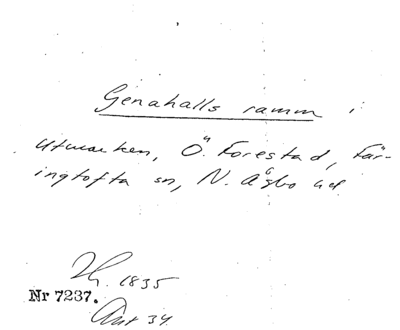 Genahalls ramm i
utmarken, Ö. Forestad, Fär-
ingtofta sn, N. Åsbo hd
1835
Nr 7237.
34